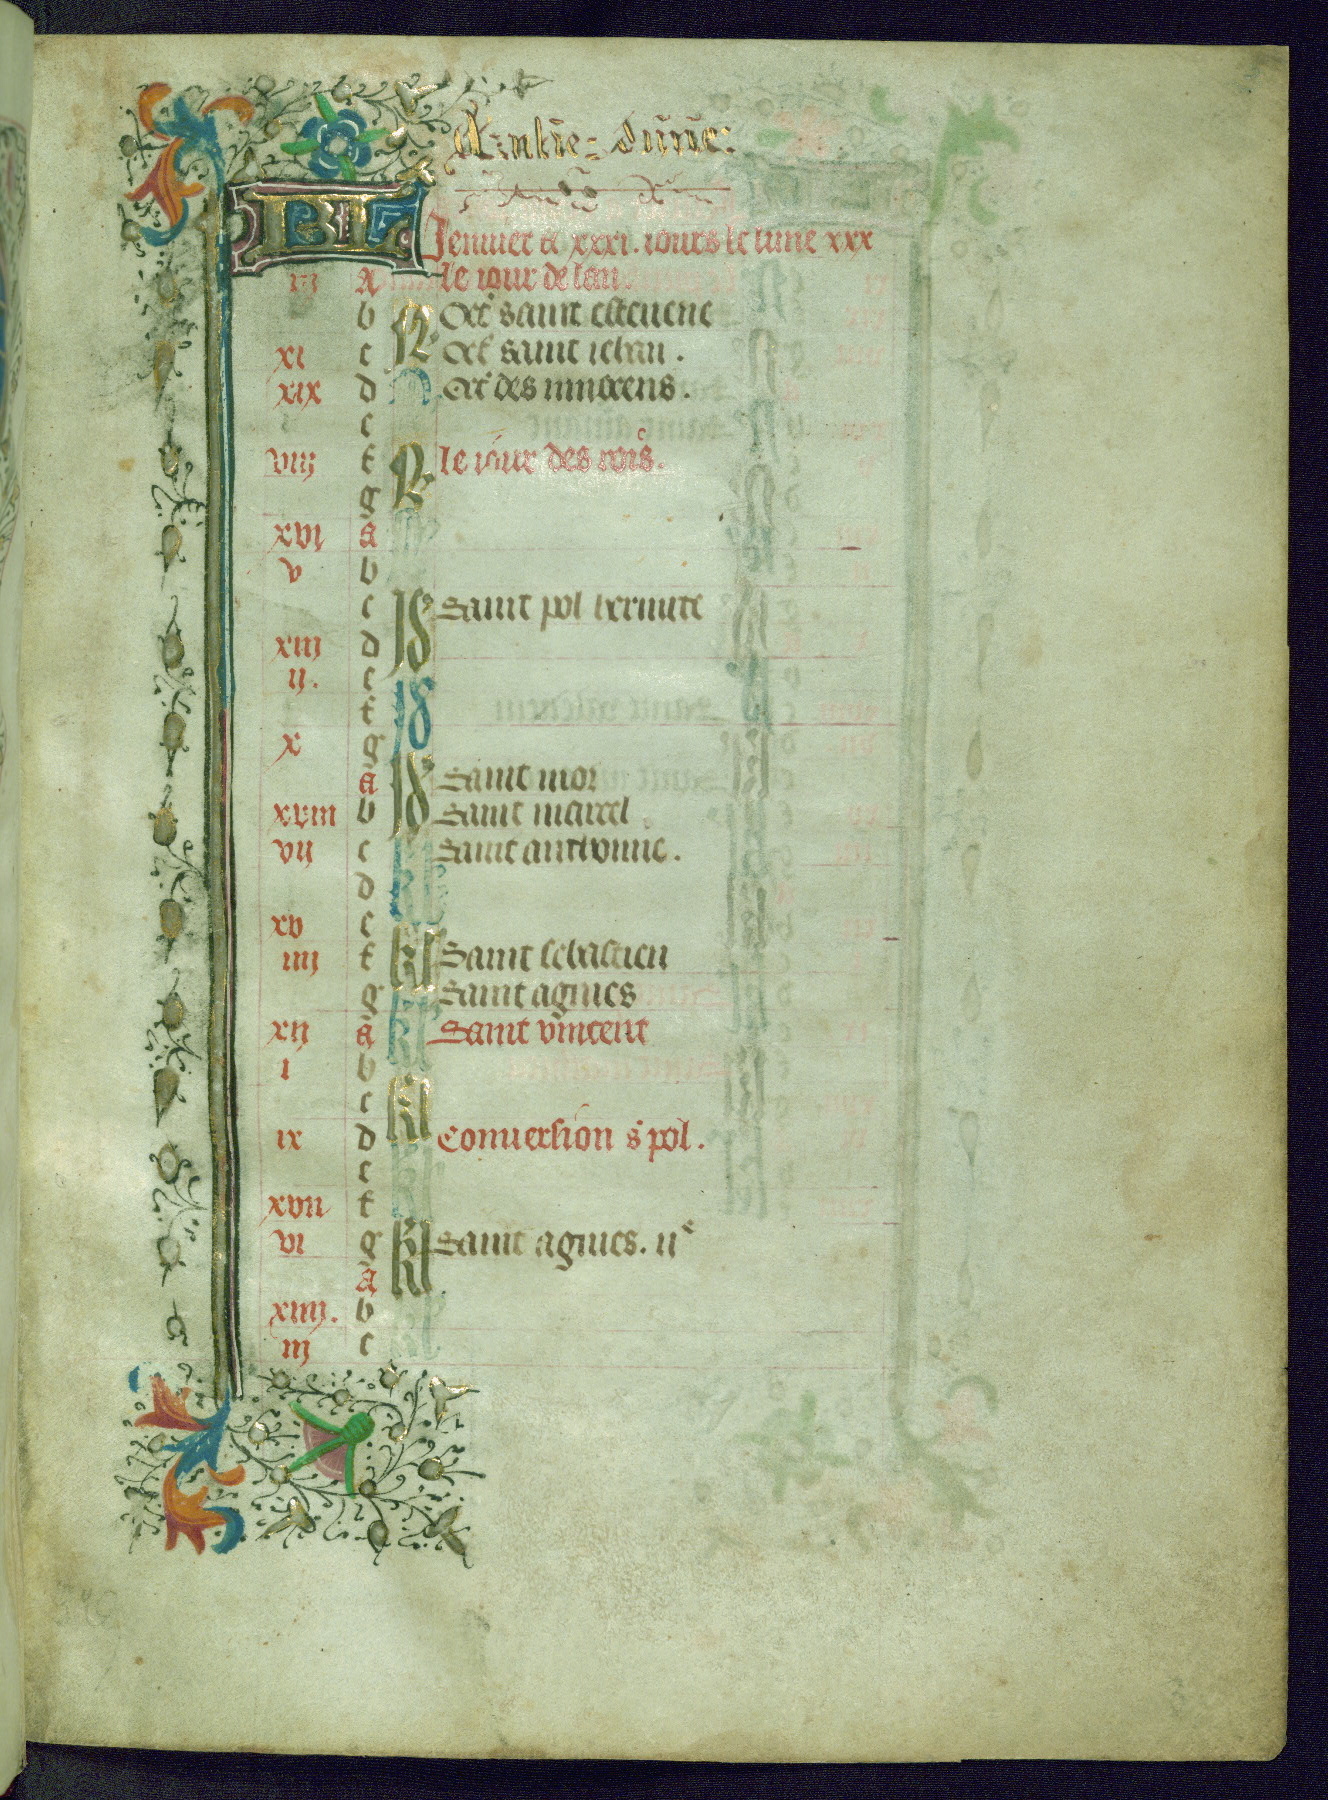 KL Jenuier a xxxi. iours le lune xxx
iij A le iour de lan
b N Oct saint esteuene
xi c Oct saint iehan .
xix d N Oct des innocens .
e
viij f N le iour des rois .
g
xvj a
v b
c Id Saint pol hermite
xiij d
ij. e Id
f
x g
a Id Saint mor
xviij b Saint marcel
vij c kl Saint anthonne .
d
xv e
iiij f kl Saint sebastien
g Saint agnies
xij a kl Saint vincent
i b
c kl
ix d Conuersion s pol .
e kl
xvij f
vi g kl Saint agnies . ije
a
xiiij. b kl
iij c